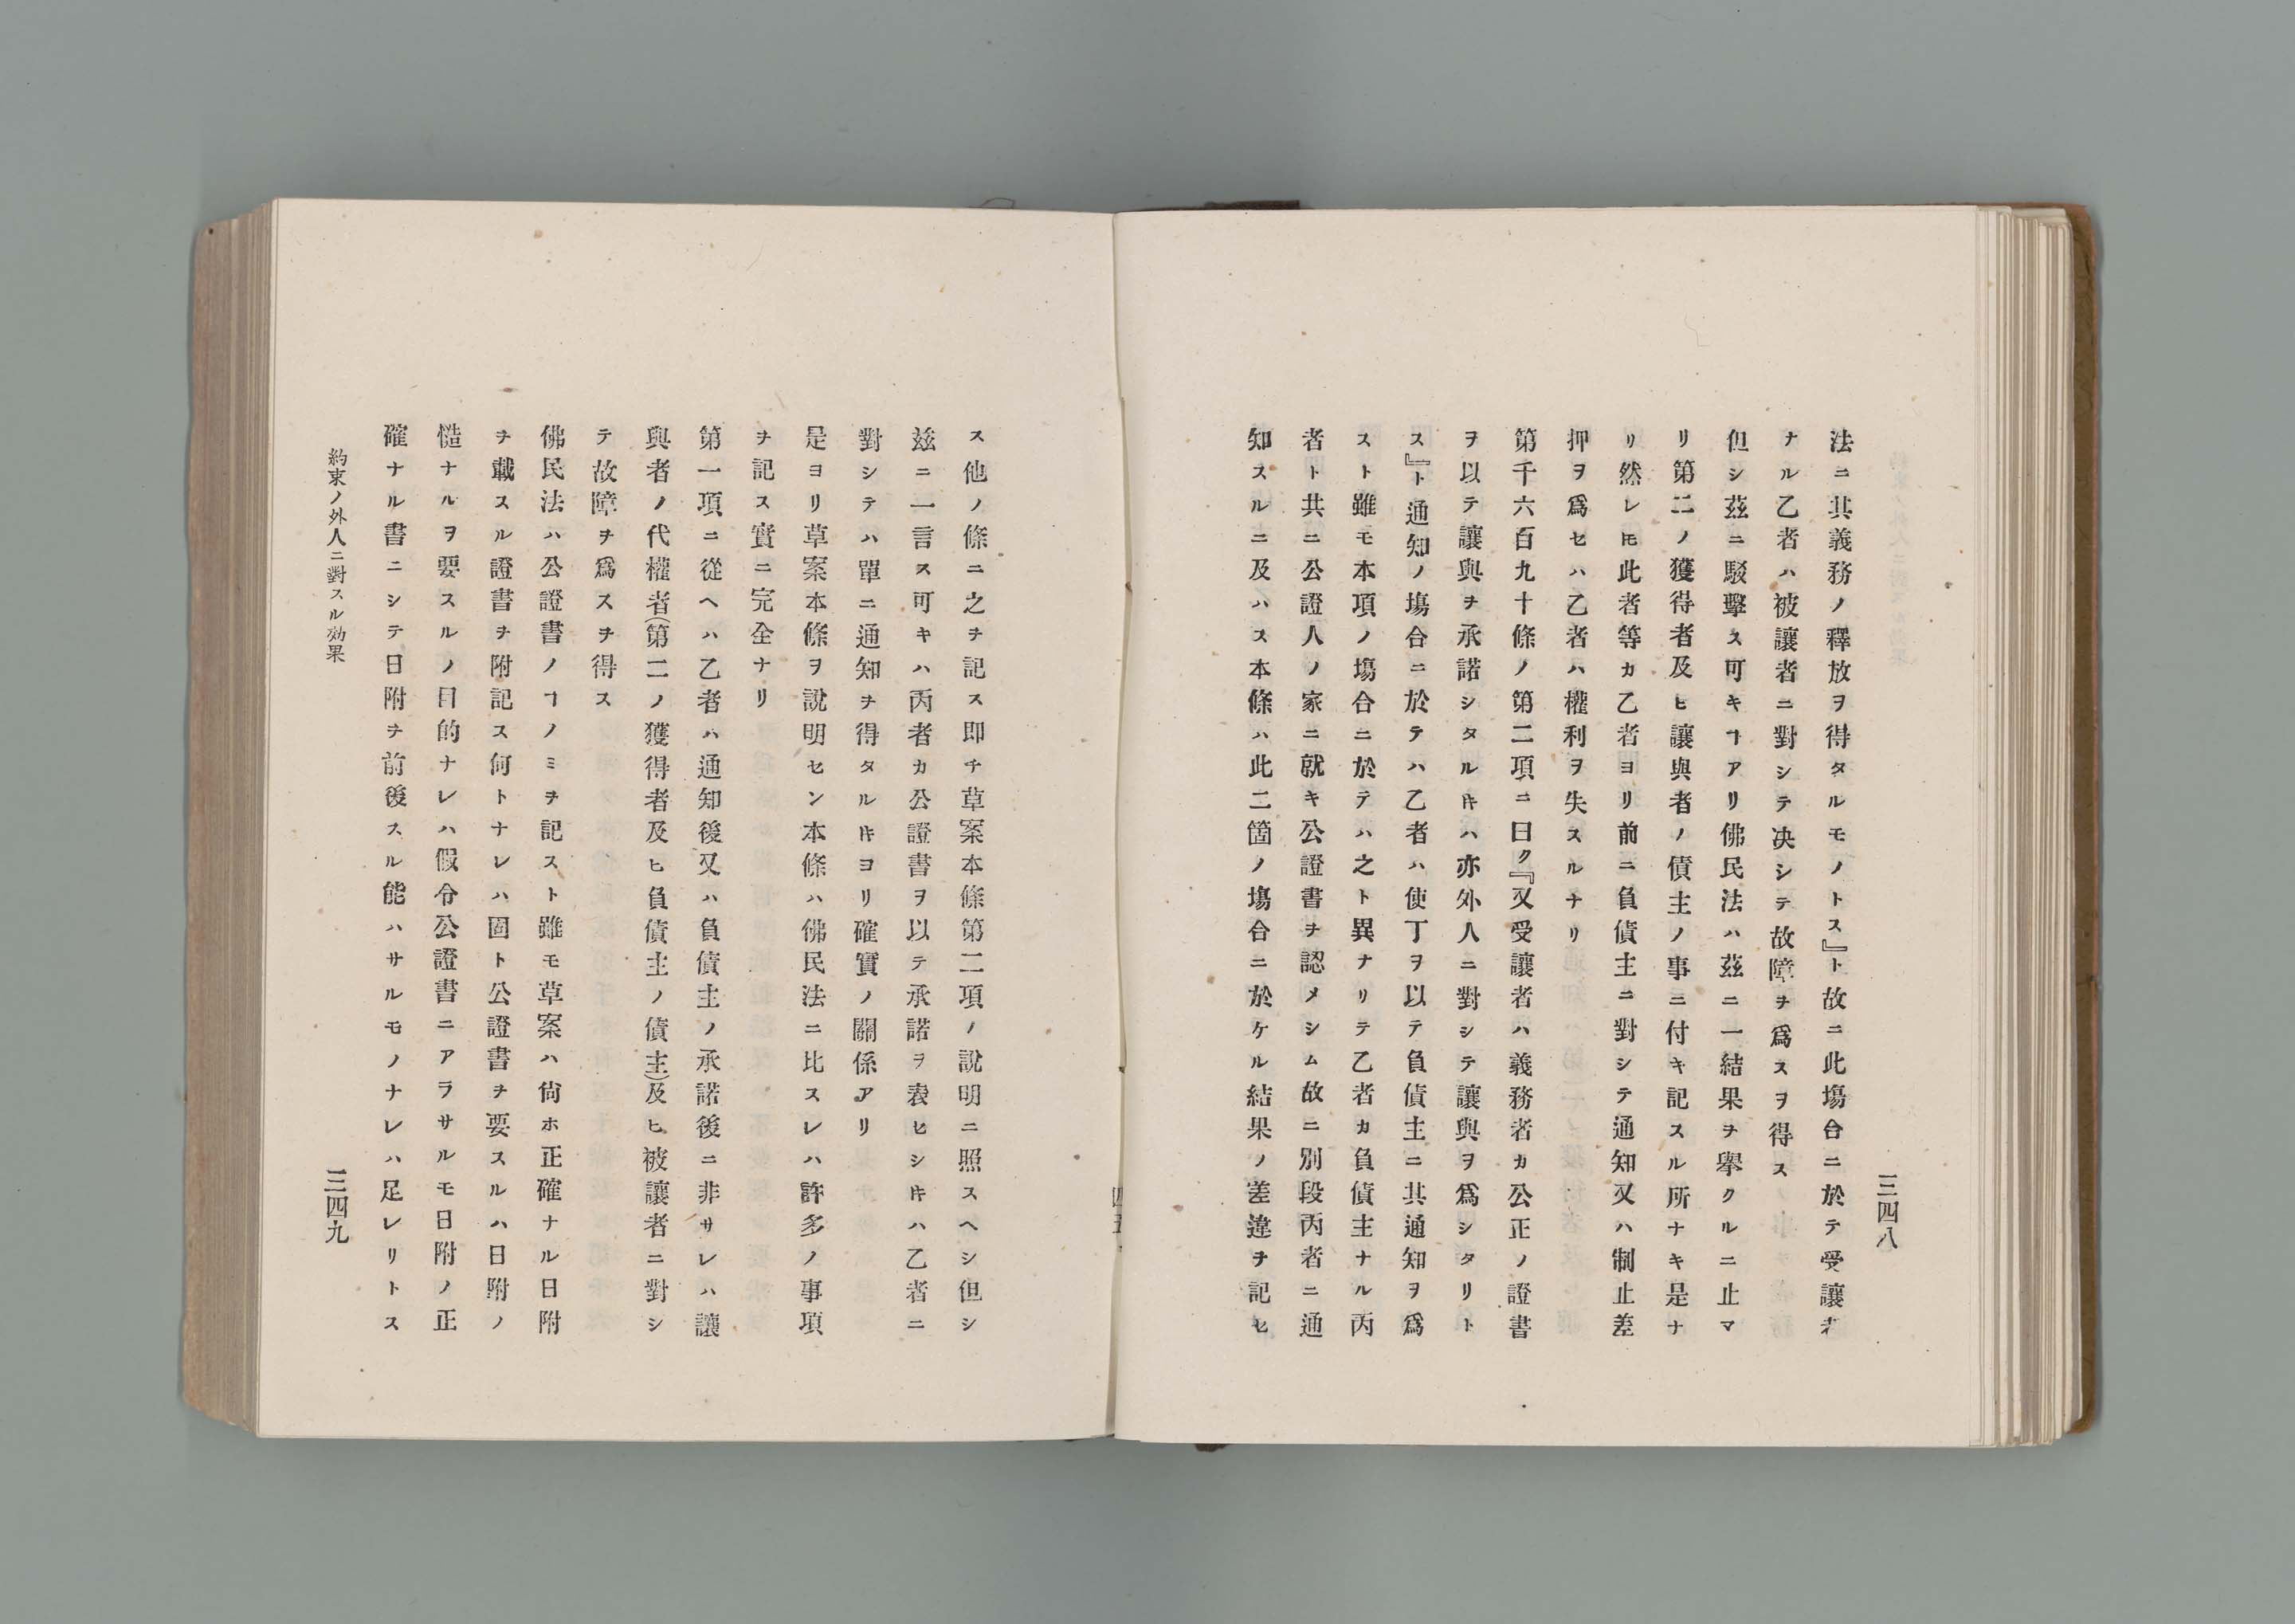 三四八
法ニ其義務ノ釋放ヲ得タルモノトス』ト故ニ此塲合ニ於テ受讓者
ナル乙者ハ被讓者ニ對シテ决シテ故障ヲ爲スヲ得ス
但シ茲ニ駁擊ス可キヿアリ佛民法ハ茲ニ一結果ヲ擧クルニ止マ
リ第二ノ獲得者及ヒ讓與者ノ債主ノ事ニ付キ記スル所ナキ是ナ
リ然レ𪜈此者等カ乙者ヨリ前ニ負債主ニ對シテ通知又ハ制止差
押ヲ爲セハ乙者ハ權利ヲ失スルナリ
第千六百九十條ノ第二項ニ曰ク『又受讓者ハ義務者カ公正ノ證書
ヲ以テ讓與ヲ承諾シタル𬼀ハ亦外人ニ對シテ讓與ヲ爲シタリト
ス』ト通知ノ塲合ニ於テハ乙者ハ使丁ヲ以テ負債主ニ其通知ヲ爲
スト雖モ本項ノ塲合ニ於テハ之ト異ナリテ乙者カ負債主ナル丙
者ト共ニ公證人ノ家ニ就キ公證書ヲ認メシム故ニ別段丙者ニ通
知スルニ及ハス本條ハ此二箇ノ塲合ニ於ケル結果ノ差違ヲ記セ
ス他ノ條ニ之ヲ記ス即チ草案本條第二項ノ說明ニ照スヘシ但シ
茲ニ一言ス可キハ丙者カ公證書ヲ以テ承諾ヲ表ヒシ𬼀ハ乙者ニ
對シテハ單ニ通知ヲ得タル𬼀ヨリ確實ノ關係アリ
是ヨリ草案本條ヲ說明セン本條ハ佛民法ニ比スレハ許多ノ事項
ヲ記ス實ニ完全ナリ
第一項ニ從ヘハ乙者ハ通知後又ハ負債主ノ承諾後ニ非サレハ讓
與者ノ代權者(第二ノ獲得者及ヒ負債主ノ債主)及ヒ被讓者ニ對シ
テ故障ヲ爲スヲ得ス
佛民法ハ公證書ノヿノミヲ記スト雖モ草案ハ尙ホ正確ナル日附
ヲ載スル證書ヲ附記ス何トナレハ固ト公證書ヲ要スルハ日附ノ
慥ナルヲ要スルノ目的ナレハ假令公證書ニアラサルモ日附ノ正
確ナル書ニシテ日附ヲ前後スル能ハサルモノナレハ足レリトス
約束ノ外人ニ對スル効果
三四九